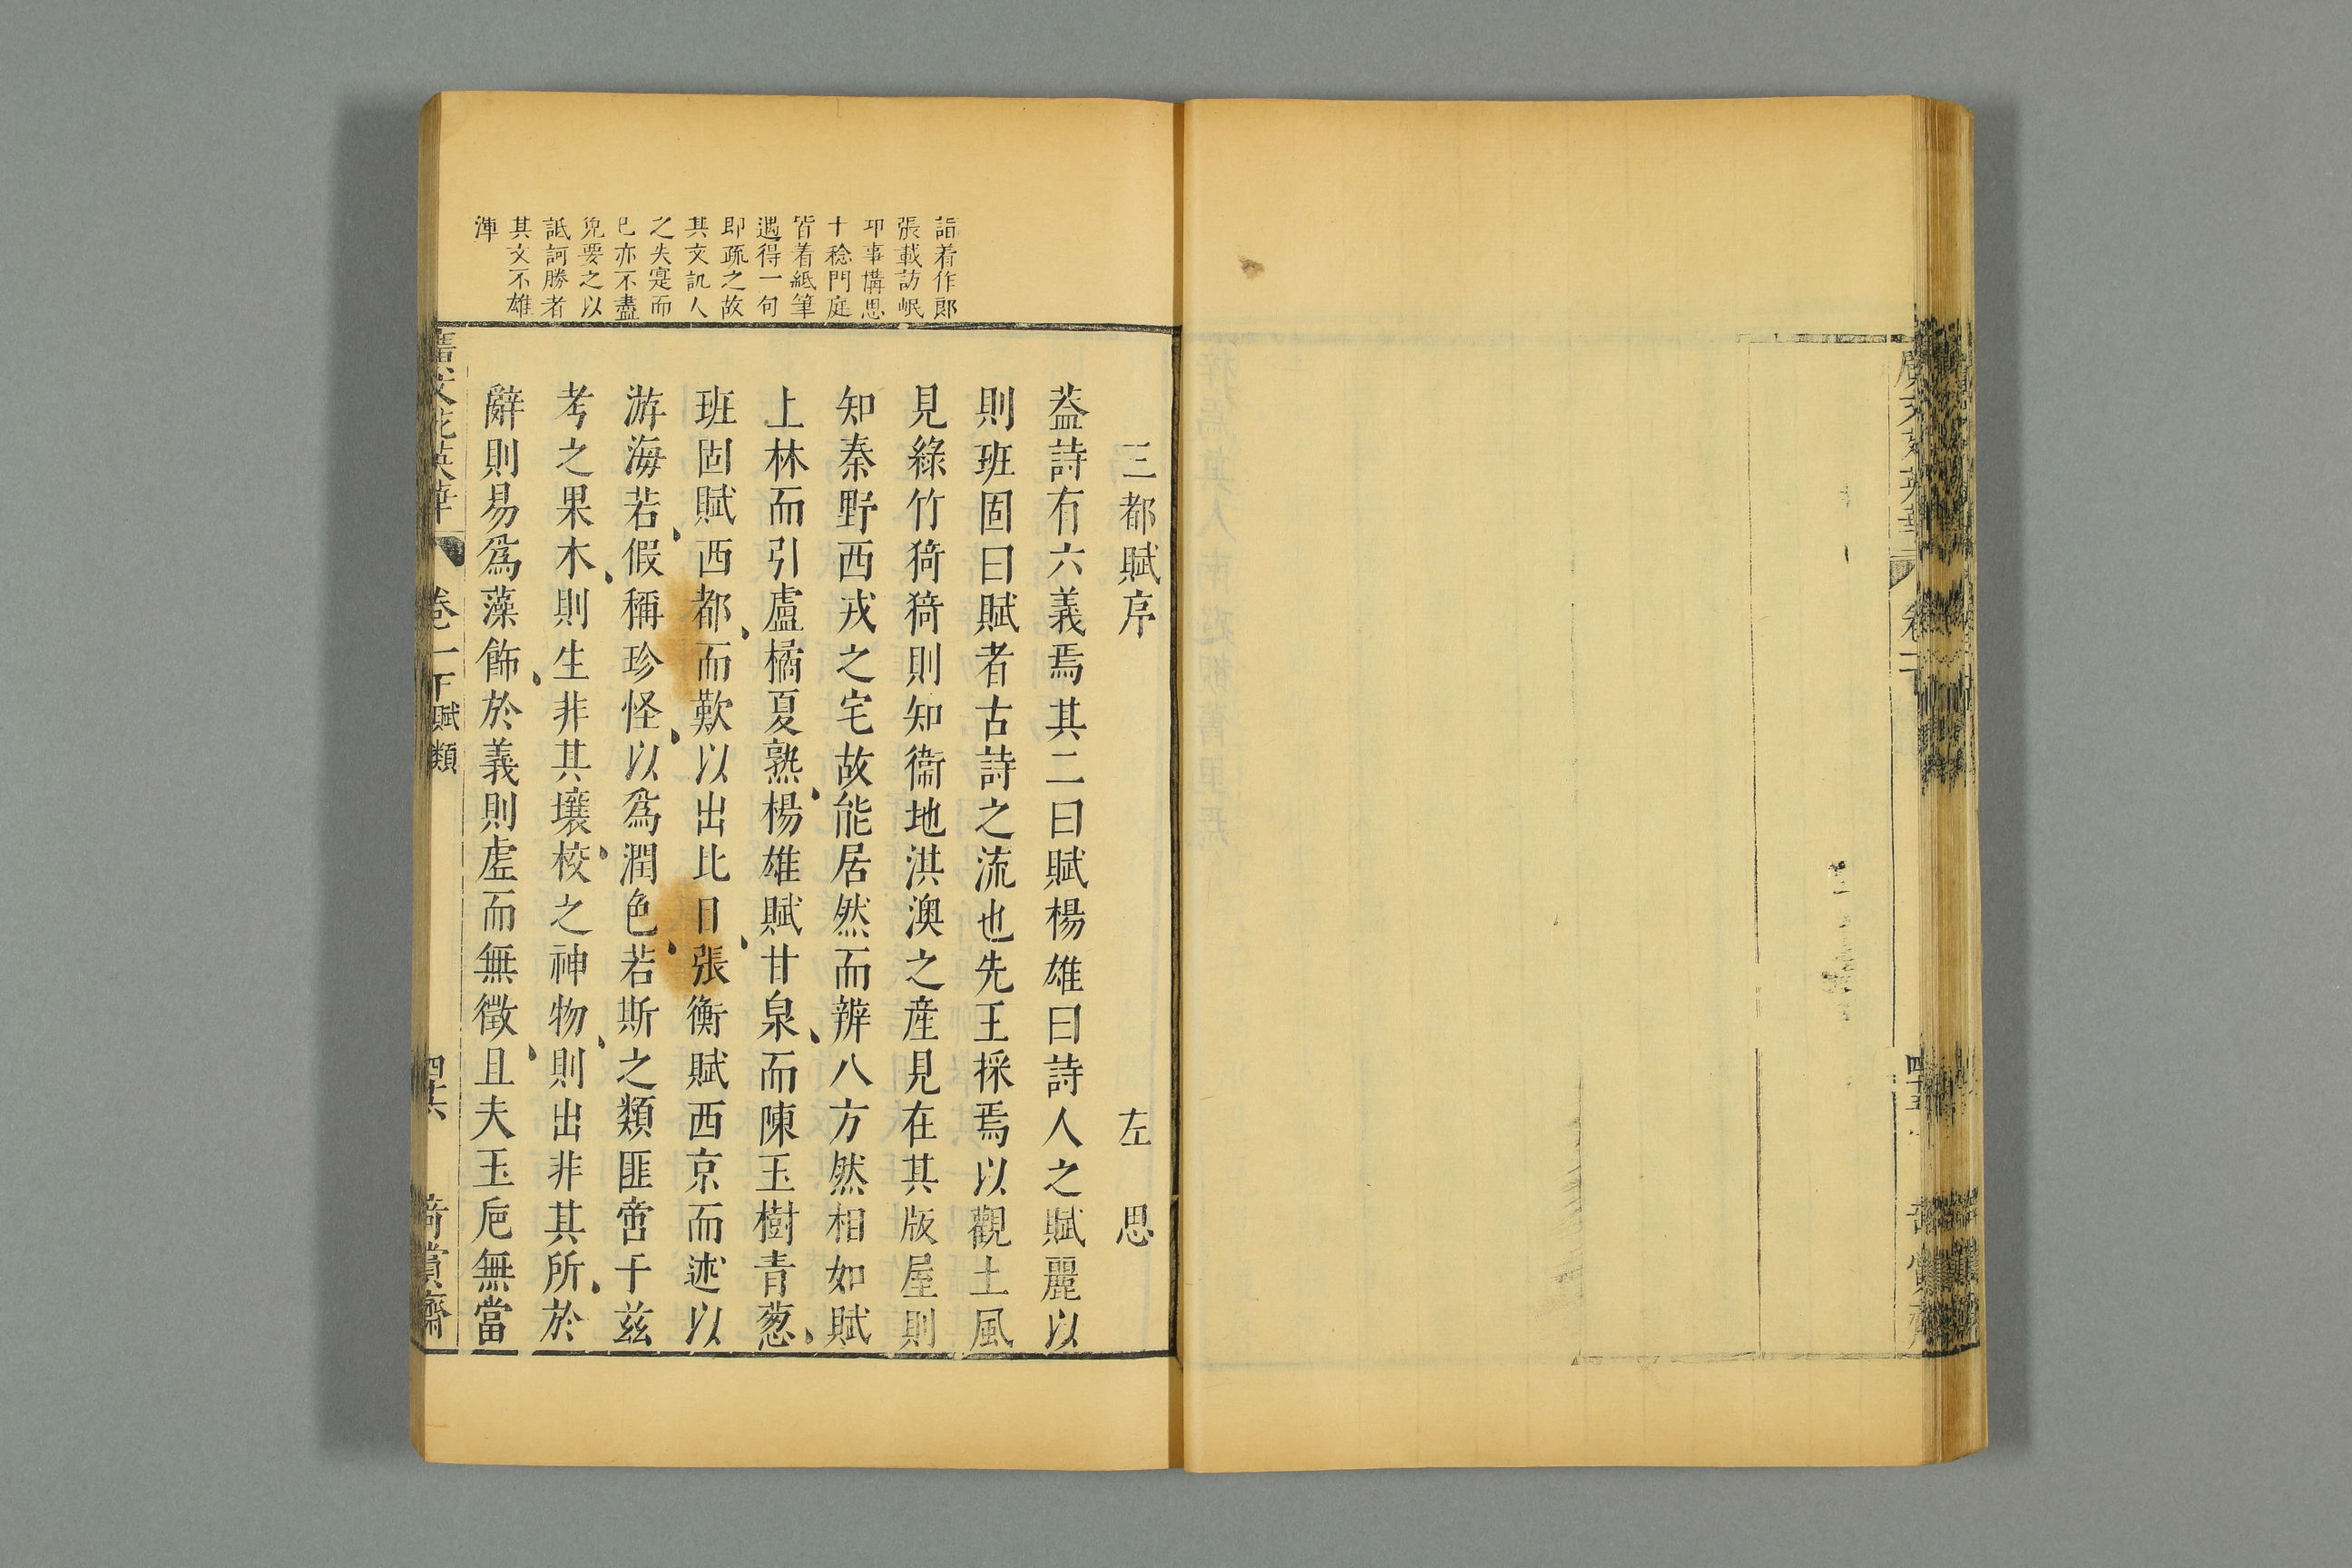 三都賦序
左思
葢詩有六義焉其二曰賦楊雄曰詩人之賦麗以
則班固曰賦者古詩之流也先王採焉以觀土風
見綠竹猗猗則知衞地淇澳之産見在其版屋則
知秦野西戎之宅故能居然而辨八方然相如賦
上林而引盧橘夏熟楊雄賦甘泉而陳玉樹青葱
班固賦西都而歎以出比目張衡賦西京而述以
游海若假稱珍怪以爲潤色若斯之類匪啻于兹
考之果木則生非其壤校之神物則出非其所於
辭則易爲藻飾於義則虛而無徵且夫玉巵無當
詣着作郎
張載訪岷
邛事搆思
十稔門庭
皆着紙筆
遇得一句
即疏之故
其文訊人
之失寔而
已亦不盡
兒要之以
詆訶勝者
其文不雄
渾
廣文苑英華
卷二十
四十五
賞齋
廣文苑英華
卷一下
賦類
四十六
賞齋